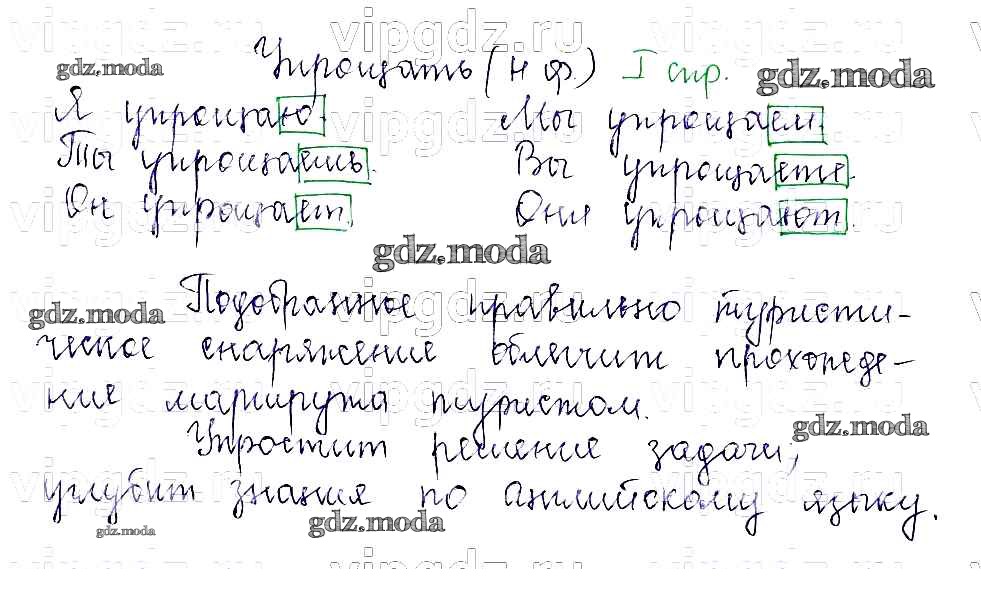 Упрощать (н ф.) I спр.
Я упрощаю. Мы упрощаем.
Ты упрощаешь. Вы упрощаете.
Он упрощает. Они упрощают.
Подобранное правильно туристи-
ческое снаряжение облегчит прохожде-
ние маршрута туристом.
Упростит решение задачи,
углубит знания по английскому языку.
vipgdz.ru
gdz.moda